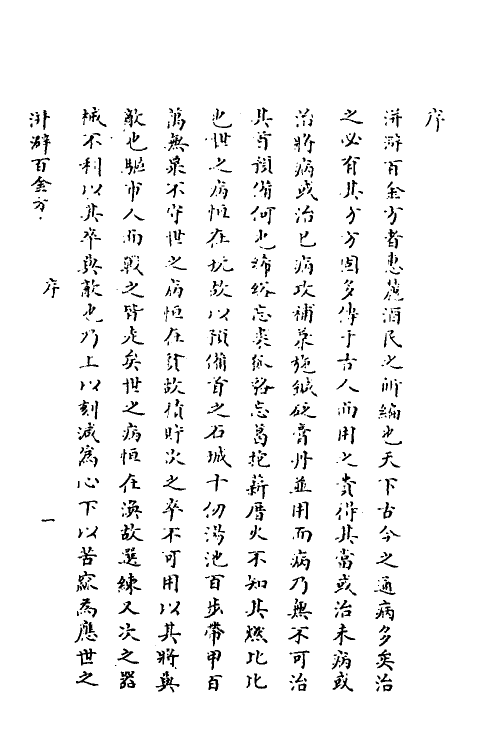 序
洴澼百金方者惠麓酒民之所編也天下古今之通病多矣治
之必有其方方固多傳于古人而用之貴得其當或治未病或
治將病或治已病攻補並施鍼砭膏丹並用而病乃無不可治
其首預備何也絺綌忘裘狐貉忘葛抱薪厝火不知其燃比比
也世之病恒在玩故以預備首之石城十仞湯池百步帶甲百
萬無粟不守世之病恒在貧故積貯次之卒不可用以其將與
敵也驅市人而戰之皆走矣世之病恒在渙故選練又次之器
械不利以其卒與敵也乃上以刻減為心下以苦窳為應世之
洴澼百金方
序
一